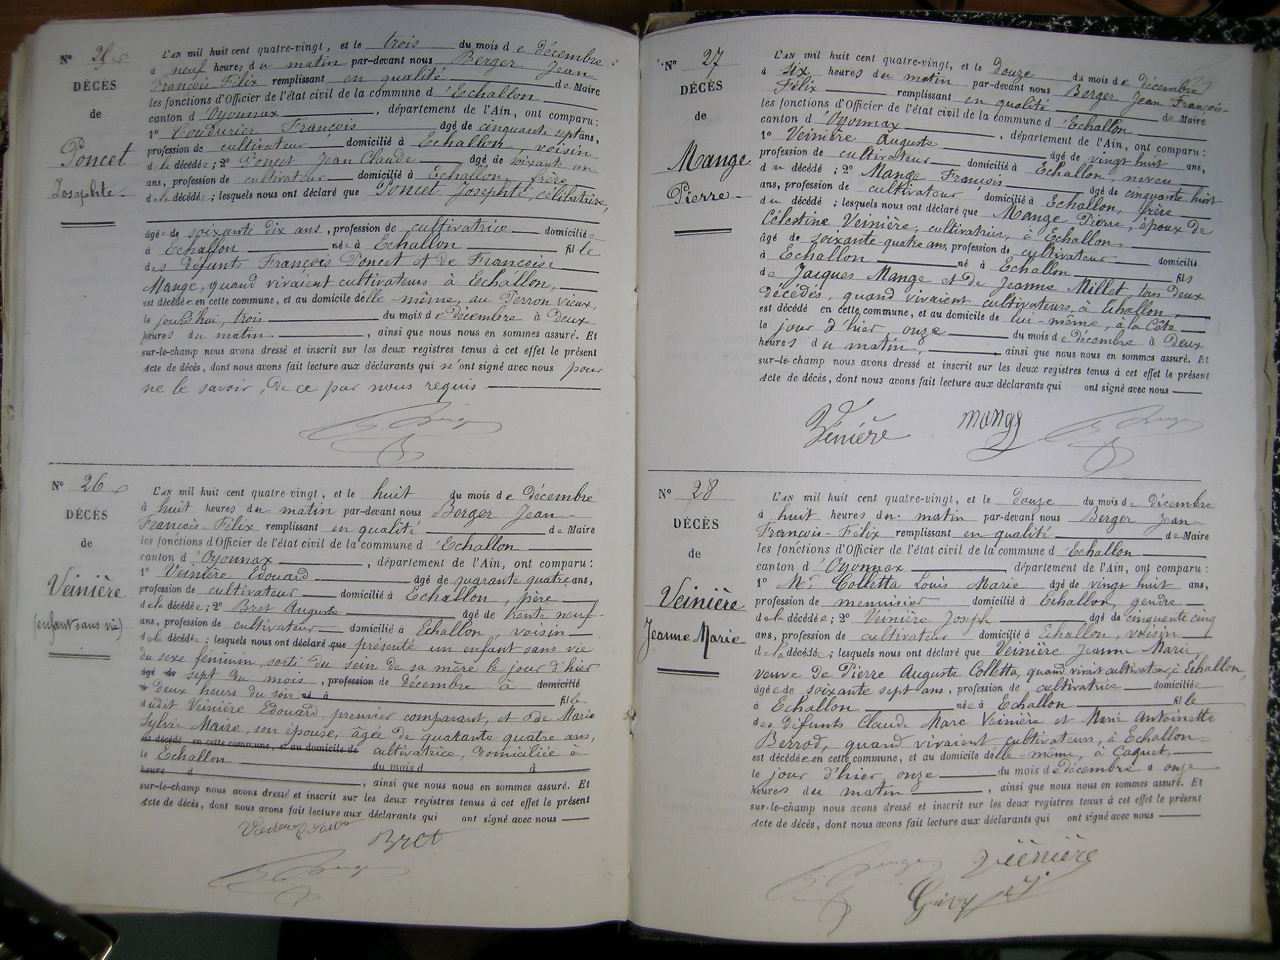 N° 25
DÉCÈS
de
Poncet
Josephte
L'AN mil huit cent quatre-vingt, et le trois du mois de décembre
à neuf heures du matin par-devant nous Berger Jean
François Félix remplissant en qualité de Maire
les fonctions d'Officier de l'état civil de la commune d'Echallon
canton d'Oyonnax, département de l'Ain, ont comparu :
1° Coudurier François âgé de cinquante sept ans,
profession de cultivateur domicilié à Echallon, voisin
de la décédée ; 2° Poncet Jean Claude âgé de soixante un
ans, profession de cultivateur domicilié à Echallon, frère
de la décédée ; lesquels nous ont déclaré que Poncet Josephte, célibataire,
âgée de soixante dix ans, profession de cultivatrice domiciliée
à Echallon née à Echallon fille
des défunts François Poncet et de Françoise
Mange, quand vivaient cultivateurs à Echallon,
est décédée en cette commune, et au domicile d'elle-même, au Perron vieux,
le jourd'hui, trois du mois de décembre à deux
heures du matin, ainsi que nous nous en sommes assuré. Et
sur-le-champ nous avons dressé et inscrit sur les deux registres tenus à cet effet le présent
acte de décès, dont nous avons fait lecture aux déclarants qui n'ont signé avec nous pour
ne le savoir, de ce par nous requis
Berger
N° 26
DÉCÈS
de
Veinière
(enfant sans vie)
L'AN mil huit cent quatre-vingt, et le huit du mois de décembre
à huit heures du matin par-devant nous Berger Jean
François-Félix remplissant en qualité de Maire
les fonctions d'Officier de l'état civil de la commune d'Echallon
canton d'Oyonnax, département de l'Ain, ont comparu :
1° Veinière Edouard âgé de quarante quatre ans,
profession de cultivateur domicilié à Echallon, père
de la décédée ; 2° Bret Auguste âgé de trente neuf
ans, profession de cultivateur domicilié à Echallon, voisin
de la décédée ; lesquels nous ont déclaré que présenté un enfant sans vie
du sexe féminin, sorti du sein de sa mère le jour d'hier
âgé de sept du mois, profession de décembre à domicilié
à deux heures du soir né à fille
dudit Veinière Edouard, premier comparant, et de Marie
Sylvie Maire, son épouse, âgée de quarante quatre ans,
est décédé en cette commune, et au domicile de cultivatrice, domiciliée à
le Echallon du mois d à
heure d, ainsi que nous nous en sommes assuré. Et
sur-le-champ nous avons dressé et inscrit sur les deux registres tenus à cet effet le présent
acte de décès, dont nous avons fait lecture aux déclarants qui ont signé avec nous
Bret
Berger
N° 27
DÉCÈS
de
Mange
Pierre
L'AN mil huit cent quatre-vingt, et le douze du mois de décembre
à six heures du matin par-devant nous Berger Jean François-
Félix remplissant en qualité de Maire
les fonctions d'Officier de l'état civil de la commune d'Echallon
canton d'Oyonnax, département de l'Ain, ont comparu :
1° Veinière Auguste âgé de vingt huit ans,
profession de cultivateur domicilié à Echallon neveu
du décédé ; 2° Mange François âgé de cinquante huit
ans, profession de cultivateur domicilié à Echallon, frère
du décédé ; lesquels nous ont déclaré que Mange Pierre, époux de
Célestine Veinière, cultivatrice, à Echallon
âgé de soixante quatre ans, profession de cultivateur domicilié
à Echallon né à Echallon fils
de Jacques Mange et de Jeanne Millet tous deux
décédés, quand vivaient cultivateurs, à Echallon,
est décédé en cette commune, et au domicile de lui-même, à la Côte
le jour d'hier, onze du mois de décembre à deux
heures du matin, ainsi que nous nous en sommes assuré. Et
sur-le-champ nous avons dressé et inscrit sur les deux registres tenus à cet effet le présent
acte de décès, dont nous avons fait lecture aux déclarants qui ont signé avec nous
Vénière Mange Berger
N° 28
DÉCÈS
de
Veinière
Jeanne Marie
L'AN mil huit cent quatre-vingt, et le douze du mois de décembre
à huit heures du matin par-devant nous Berger Jean
François-Félix remplissant en qualité de Maire
les fonctions d'Officier de l'état civil de la commune d'Echallon
canton d'Oyonnax, département de l'Ain, ont comparu :
1° Mr Colletta Louis Marie âgé de vingt huit ans,
profession de menuisier domicilié à Echallon, gendre
de la décédée ; 2° Veinière Joseph âgé de cinquante cinq
ans, profession de cultivateur domicilié à Echallon, voisin
de la décédée ; lesquels nous ont déclaré que Veinière Jeanne Marie,
veuve de Pierre Auguste Colletta, quand vivait cultivateur, à Echallon,
âgée de soixante sept ans, profession de cultivatrice domiciliée
à Echallon née à Echallon fille
des défunts Claude Marc Veinière et Marie Antoinette
Berrod, quand vivaient cultivateurs, à Echallon
est décédée en cette commune, et au domicile d'elle-même, à Caquet
le jour d'hier, onze du mois de décembre à onze
heures du matin, ainsi que nous nous en sommes assuré. Et
sur-le-champ nous avons dressé et inscrit sur les deux registres tenus à cet effet le présent
acte de décès, dont nous avons fait lecture aux déclarants qui ont signé avec nous
Berger Viénière